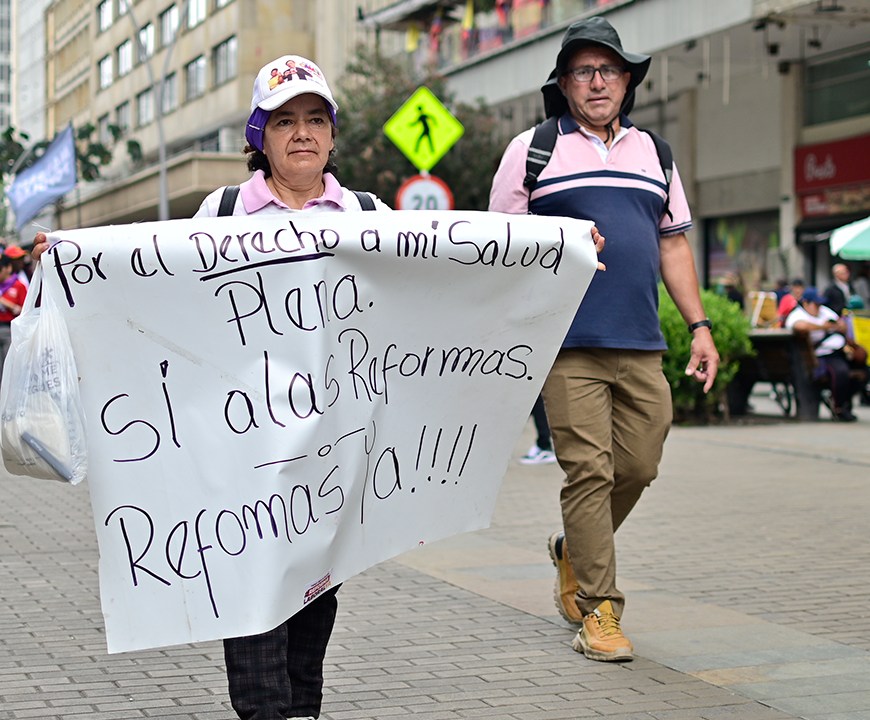 Por el Derecho a mi Salud
Plena.
Sí a las Reformas.
Refomas Ya!!!!
20